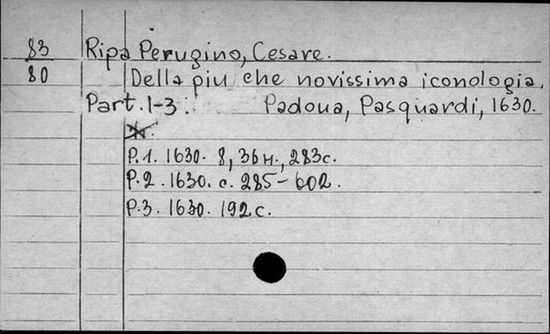 83 Ripa Perugino, Cesare.
80 Della piu che novissima iconologia.
Part. 1-3. Padoua, Pasquardi, 1630.
P.1. 1630. 8, 36 н., 283 с.
P.2. 1630. с. 285-602.
P.3. 1630. 192 с.